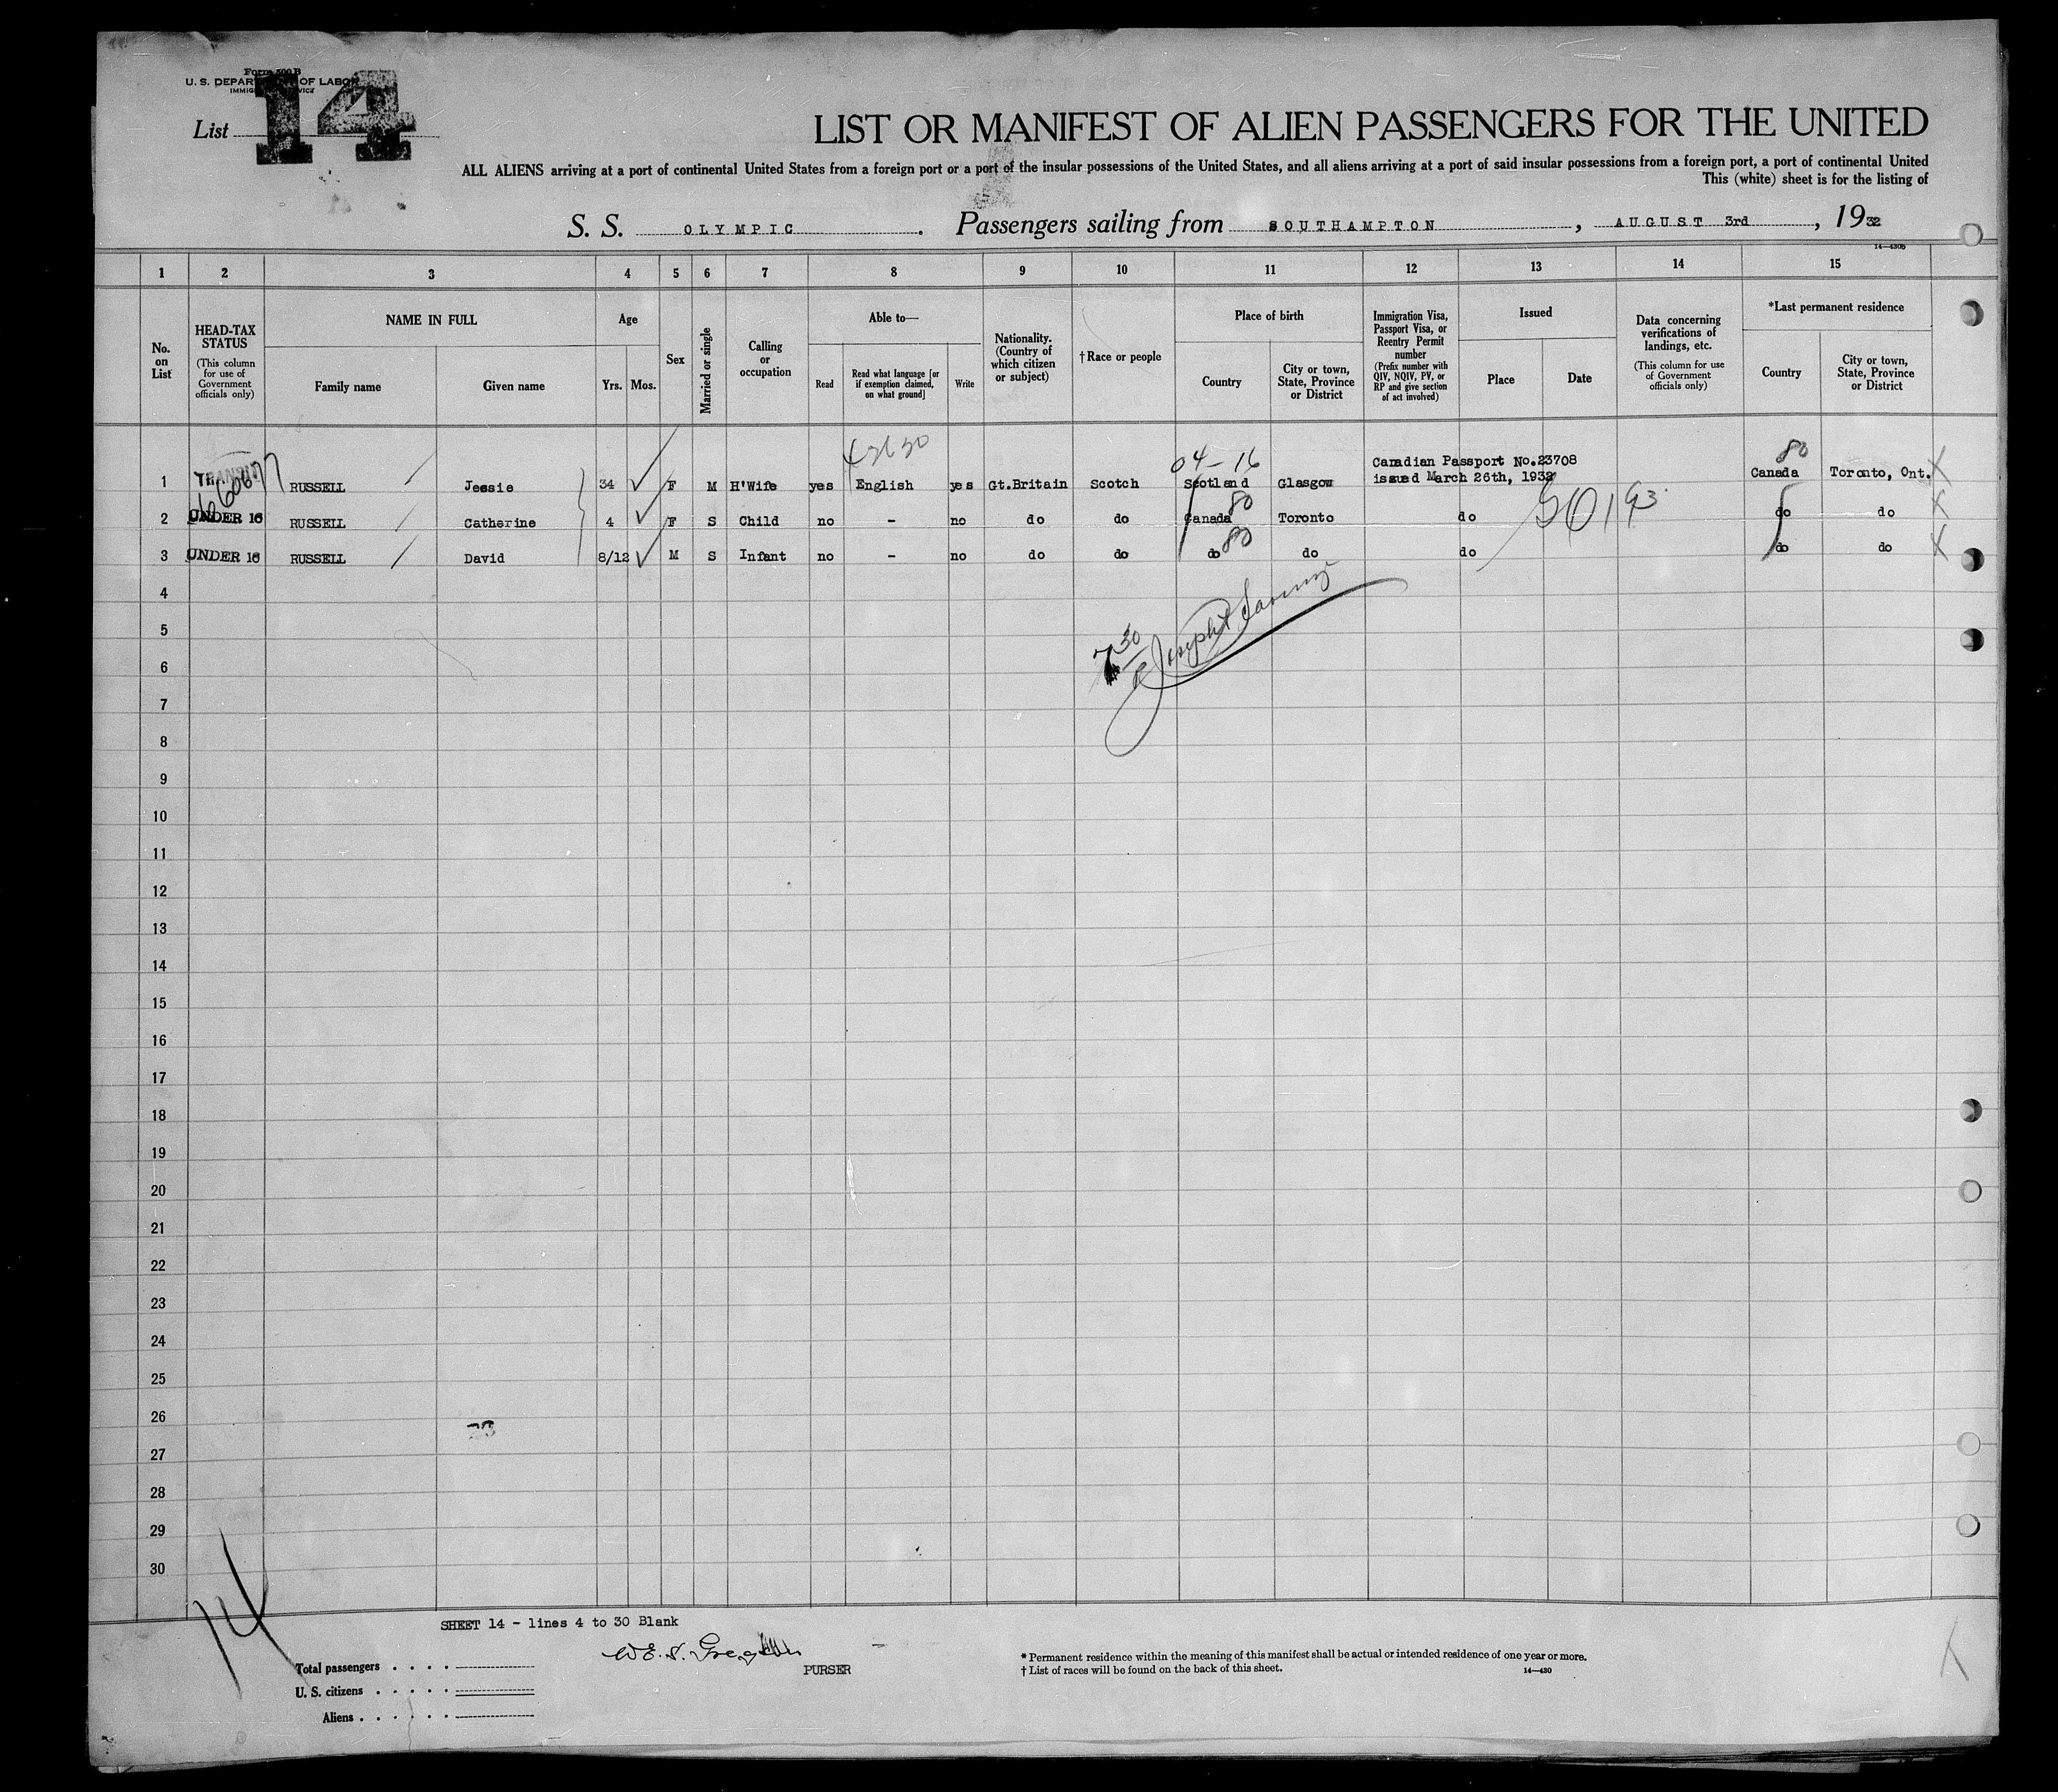 Form 500 B
U. S. DEPARTMENT OF LABOR
IMMIGRATION SERVICE
List 14
LIST OR MANIFEST OF ALIEN PASSENGERS FOR THE UNITED
ALL ALIENS arriving at a port of continental United States from a foreign port or a port of the insular possessions of the United States, and all aliens arriving at a port of said insular possessions from a foreign port, a port of continental United
This (white) sheet is for the listing of
S. S. OLYMPIC. Passengers sailing from SOUTHAMPTON, AUGUST 3rd, 1932
14—430B
1 2 3 4 5 6 7 8 9 10 11 12 13 14 15
No. on List
HEAD-TAX STATUS (This column for use of Government officials only)
NAME IN FULL
Family name Given name
Age
Yrs. Mos.
Sex
Married or single
Calling or occupation
Able to—
Read
Read what language [or if exemption claimed, on what ground]
Write
Nationality. (Country of which citizen or subject)
†Race or people
Place of birth
Country
City or town, State, Province or District
Immigration Visa, Passport Visa, or Reentry Permit number (Prefix number with QIV, NQIV, PV, or RP and give section of act involved)
Issued
Place Date
Data concerning verifications of landings, etc. (This column for use of Government officials only)
*Last permanent residence
Country
City or town, State, Province or District
04-16 80
1 TRANSIT RUSSELL Jessie 34 F M H'Wife yes English yes Gt.Britain Scotch Scotland Glasgow Canadian Passport No.23708 issued March 26th, 1932 Canada Toronto, Ont.
2 UNDER 16 RUSSELL Catherine 4 F S Child no - no do do Canada 80 Toronto do do do
3 UNDER 16 RUSSELL David 8/12 M S Infant no - no do do do 80 do do do do
4
5
6
7
8
9
10
11
12
13
14
15
16
17
18
19
20
21
22
23
24
25
26
27
28
29
30
14
SHEET 14 - lines 4 to 30 Blank
PURSER
Total passengers . . . .
U. S. citizens . . . . .
Aliens . . . . . .
* Permanent residence within the meaning of this manifest shall be actual or intended residence of one year or more.
† List of races will be found on the back of this sheet.
14—430